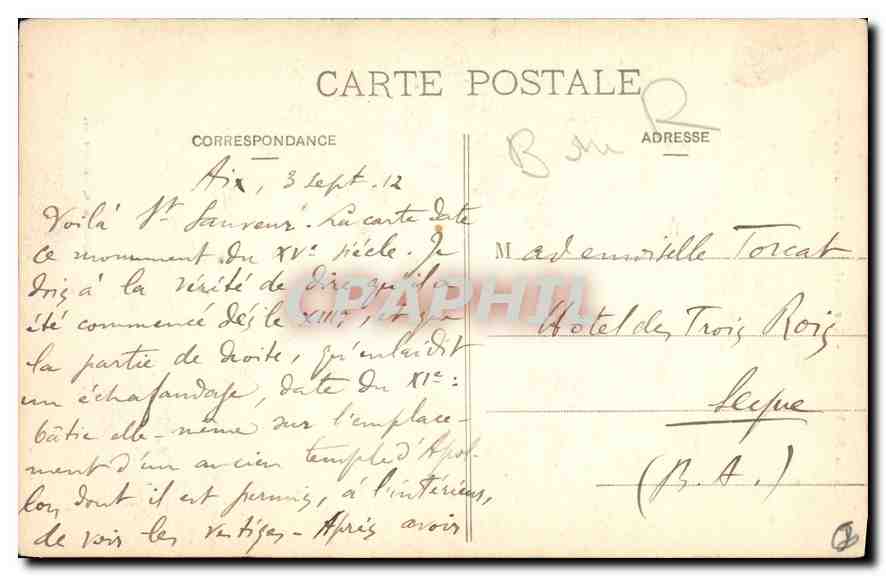 CARTE POSTALE
CORRESPONDANCE
Aix, 3 sept. 12
Voilà St Sauveur. La carte date
ce monument du XVe siècle. Je
dois à la vérité de dire qu'il a
été commencé dès le XIIIe, et que
la partie de droite, qu'enlaidit
un échafaudage, date du XIe :
bâtie elle-même sur l'emplace-
ment d'un ancien temple d'Apol-
lon dont il est permis, à l'intérieur,
de voir les vestiges - Après avoir
ADRESSE
Mademoiselle Torcat
Hôtel des Trois Rois
Seyne
(B. A.)
CPAPHIL